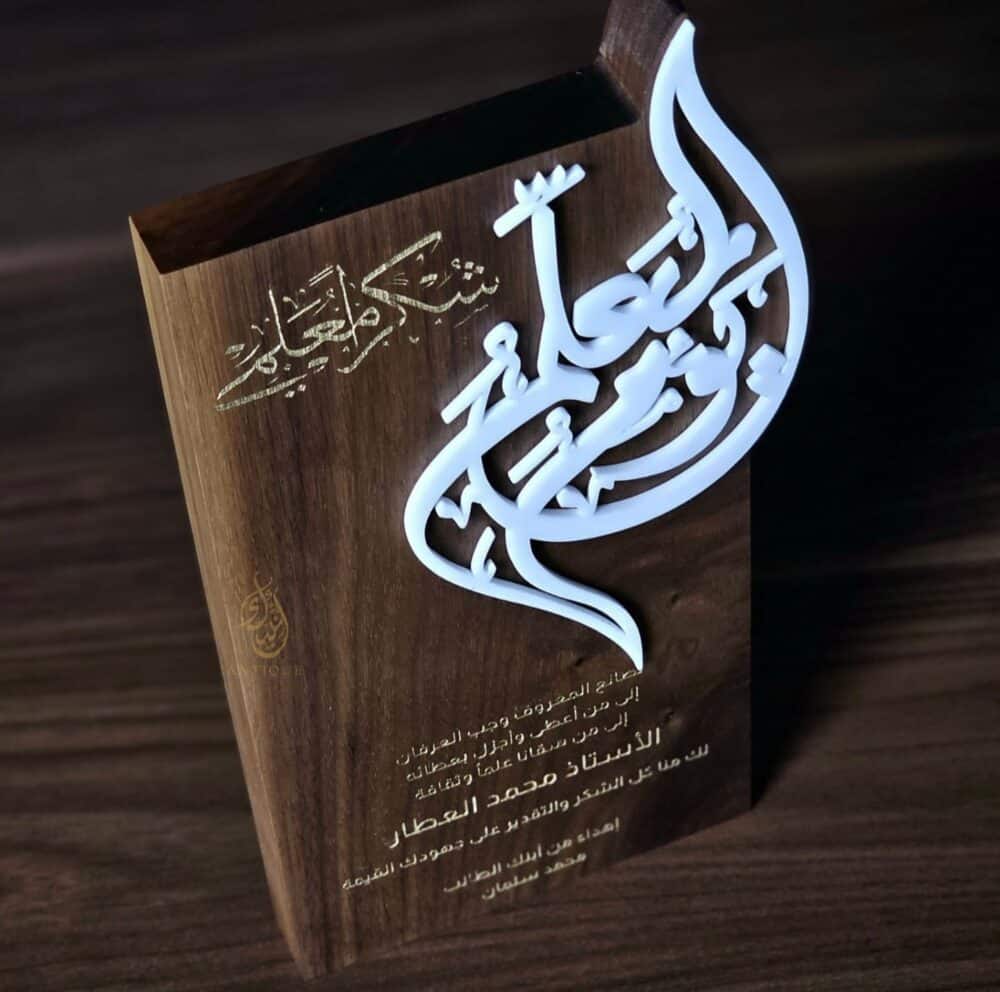 شُكراً مُعَلِّمي
يوم المعلم
لصانع المعروف وجب العرفان
إلى من أعطى وأجزل بعطائه
إلى من سقانا علماً وثقافة
الأستاذ محمد العطار
لك منا كل الشكر والتقدير على جهودك القيمة
إهداء من أبنك الطالب
محمد سلمان